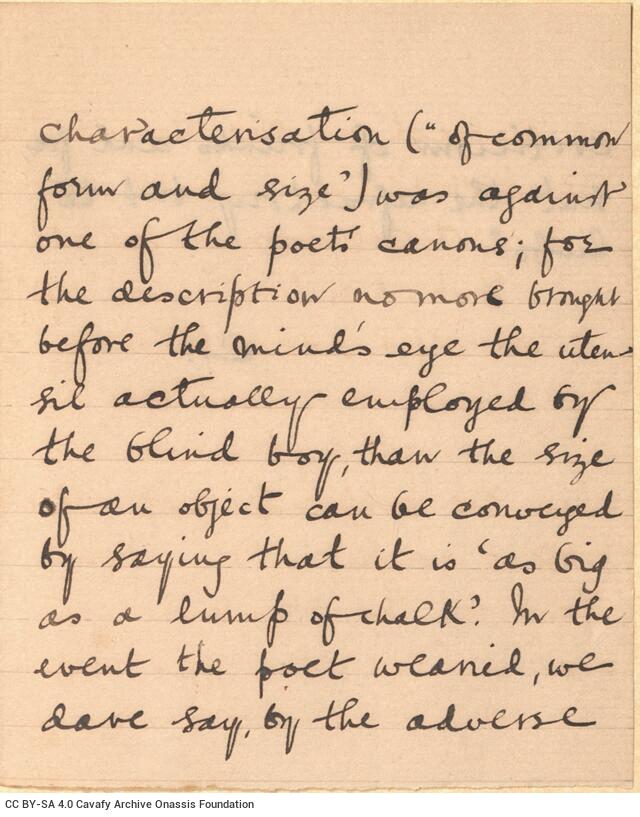 characterisation ("of common
form and size') was against
one of the poet's canons; for
the description no more brought
before the mind's eye the uten-
sil actually employed by
the blind boy, than the size
of an object can be conveyed
by saying that it is 'as big
as a lump of chalk'. In the
event the poet wearied, we
dare say, by the adverse
CC BY-SA 4.0 Cavafy Archive Onassis Foundation